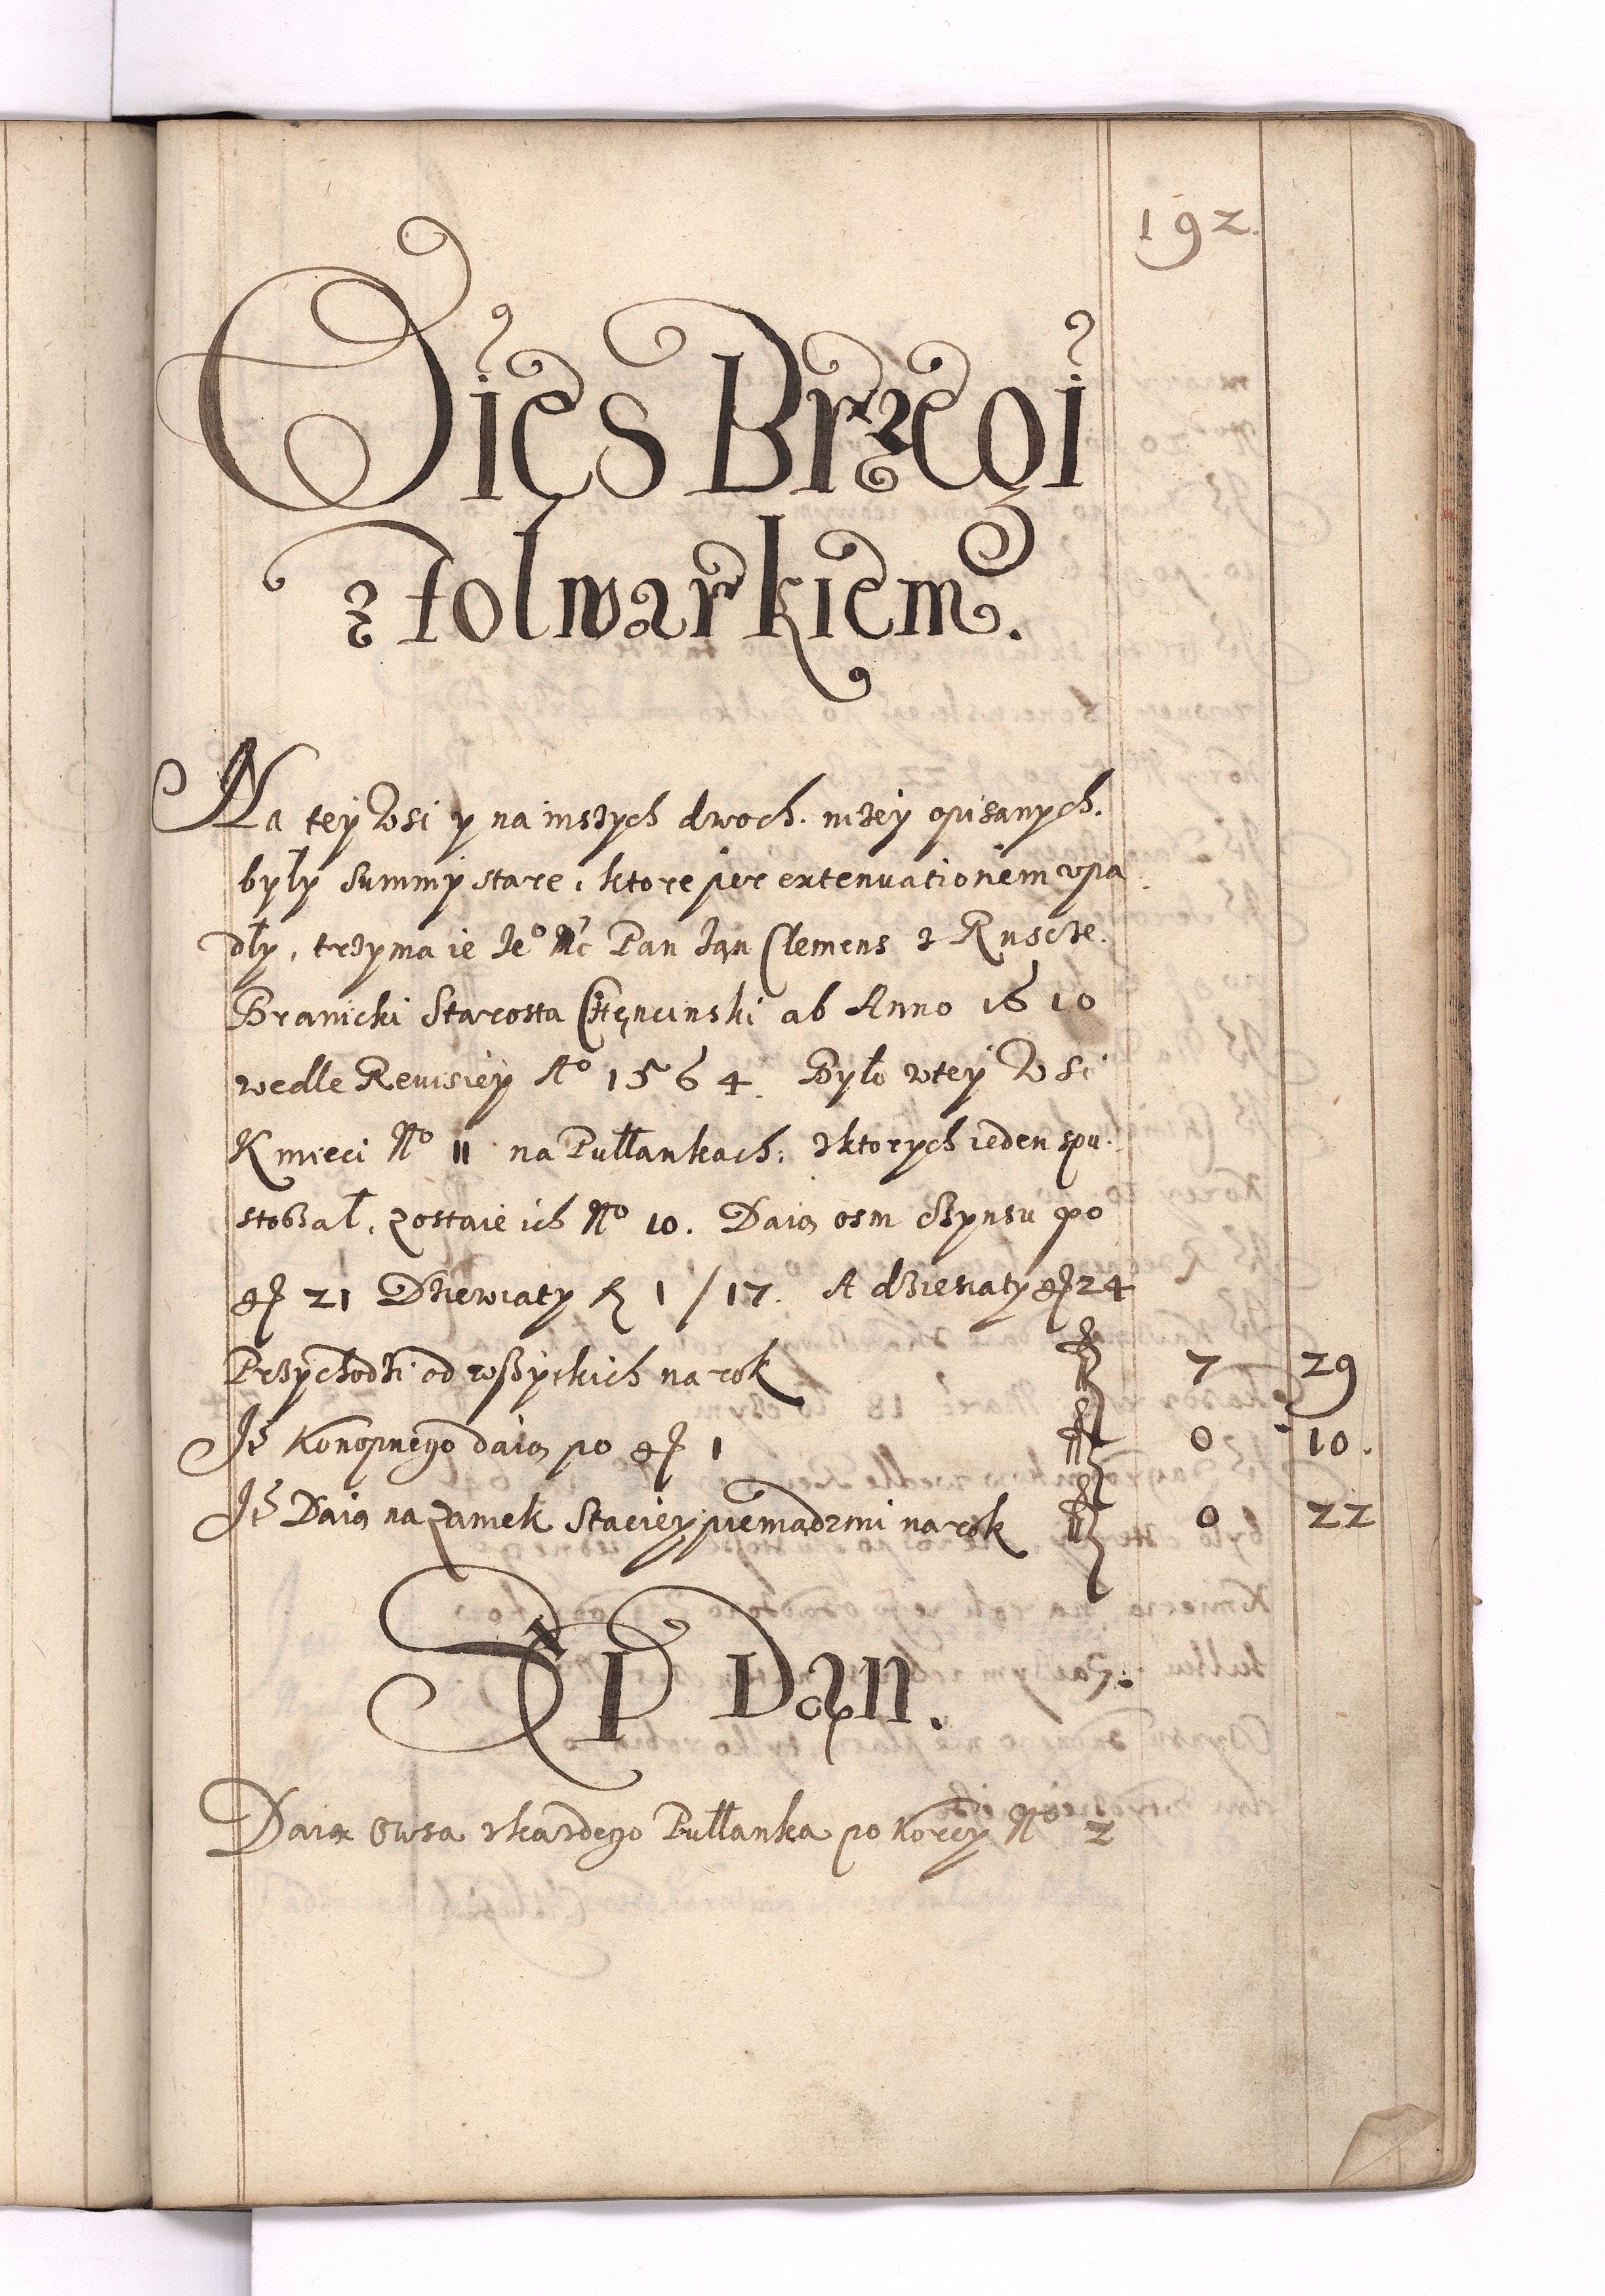 192.
Wies Brzegi
z folwarkiem.
Na tey Wsi y na inszych dwoch. nizey opisanych.
były Summy stare, ktore per extenuationem upa
dły, trzyma ie Je⁰ Mc Pan Jan Clemens z Ruscze.
Branicki Starosta Chęncinski ab Anno 1610
wedle Reuisiey A⁰ 1564. Było w tey Wsi
Kmieci N⁰ 11 na Pułłankach: z ktorych ieden spu.
stoszał, zostaie ich N⁰ 10. Daią osm Czynszu po
gł 21 Dziewiaty fl 1/17. A dziesiaty gł 24
Przychodzi od wszyckich na rok fl 7 29
Jt Konopnego daią po gł 1 fl 0 10.
Jt Daią na Zamek Staciey pieniądzmi na rok fl 0 22
Sęp Dan.
Daią Owsa z kazdego Pułłanka po Korcy N⁰ 2